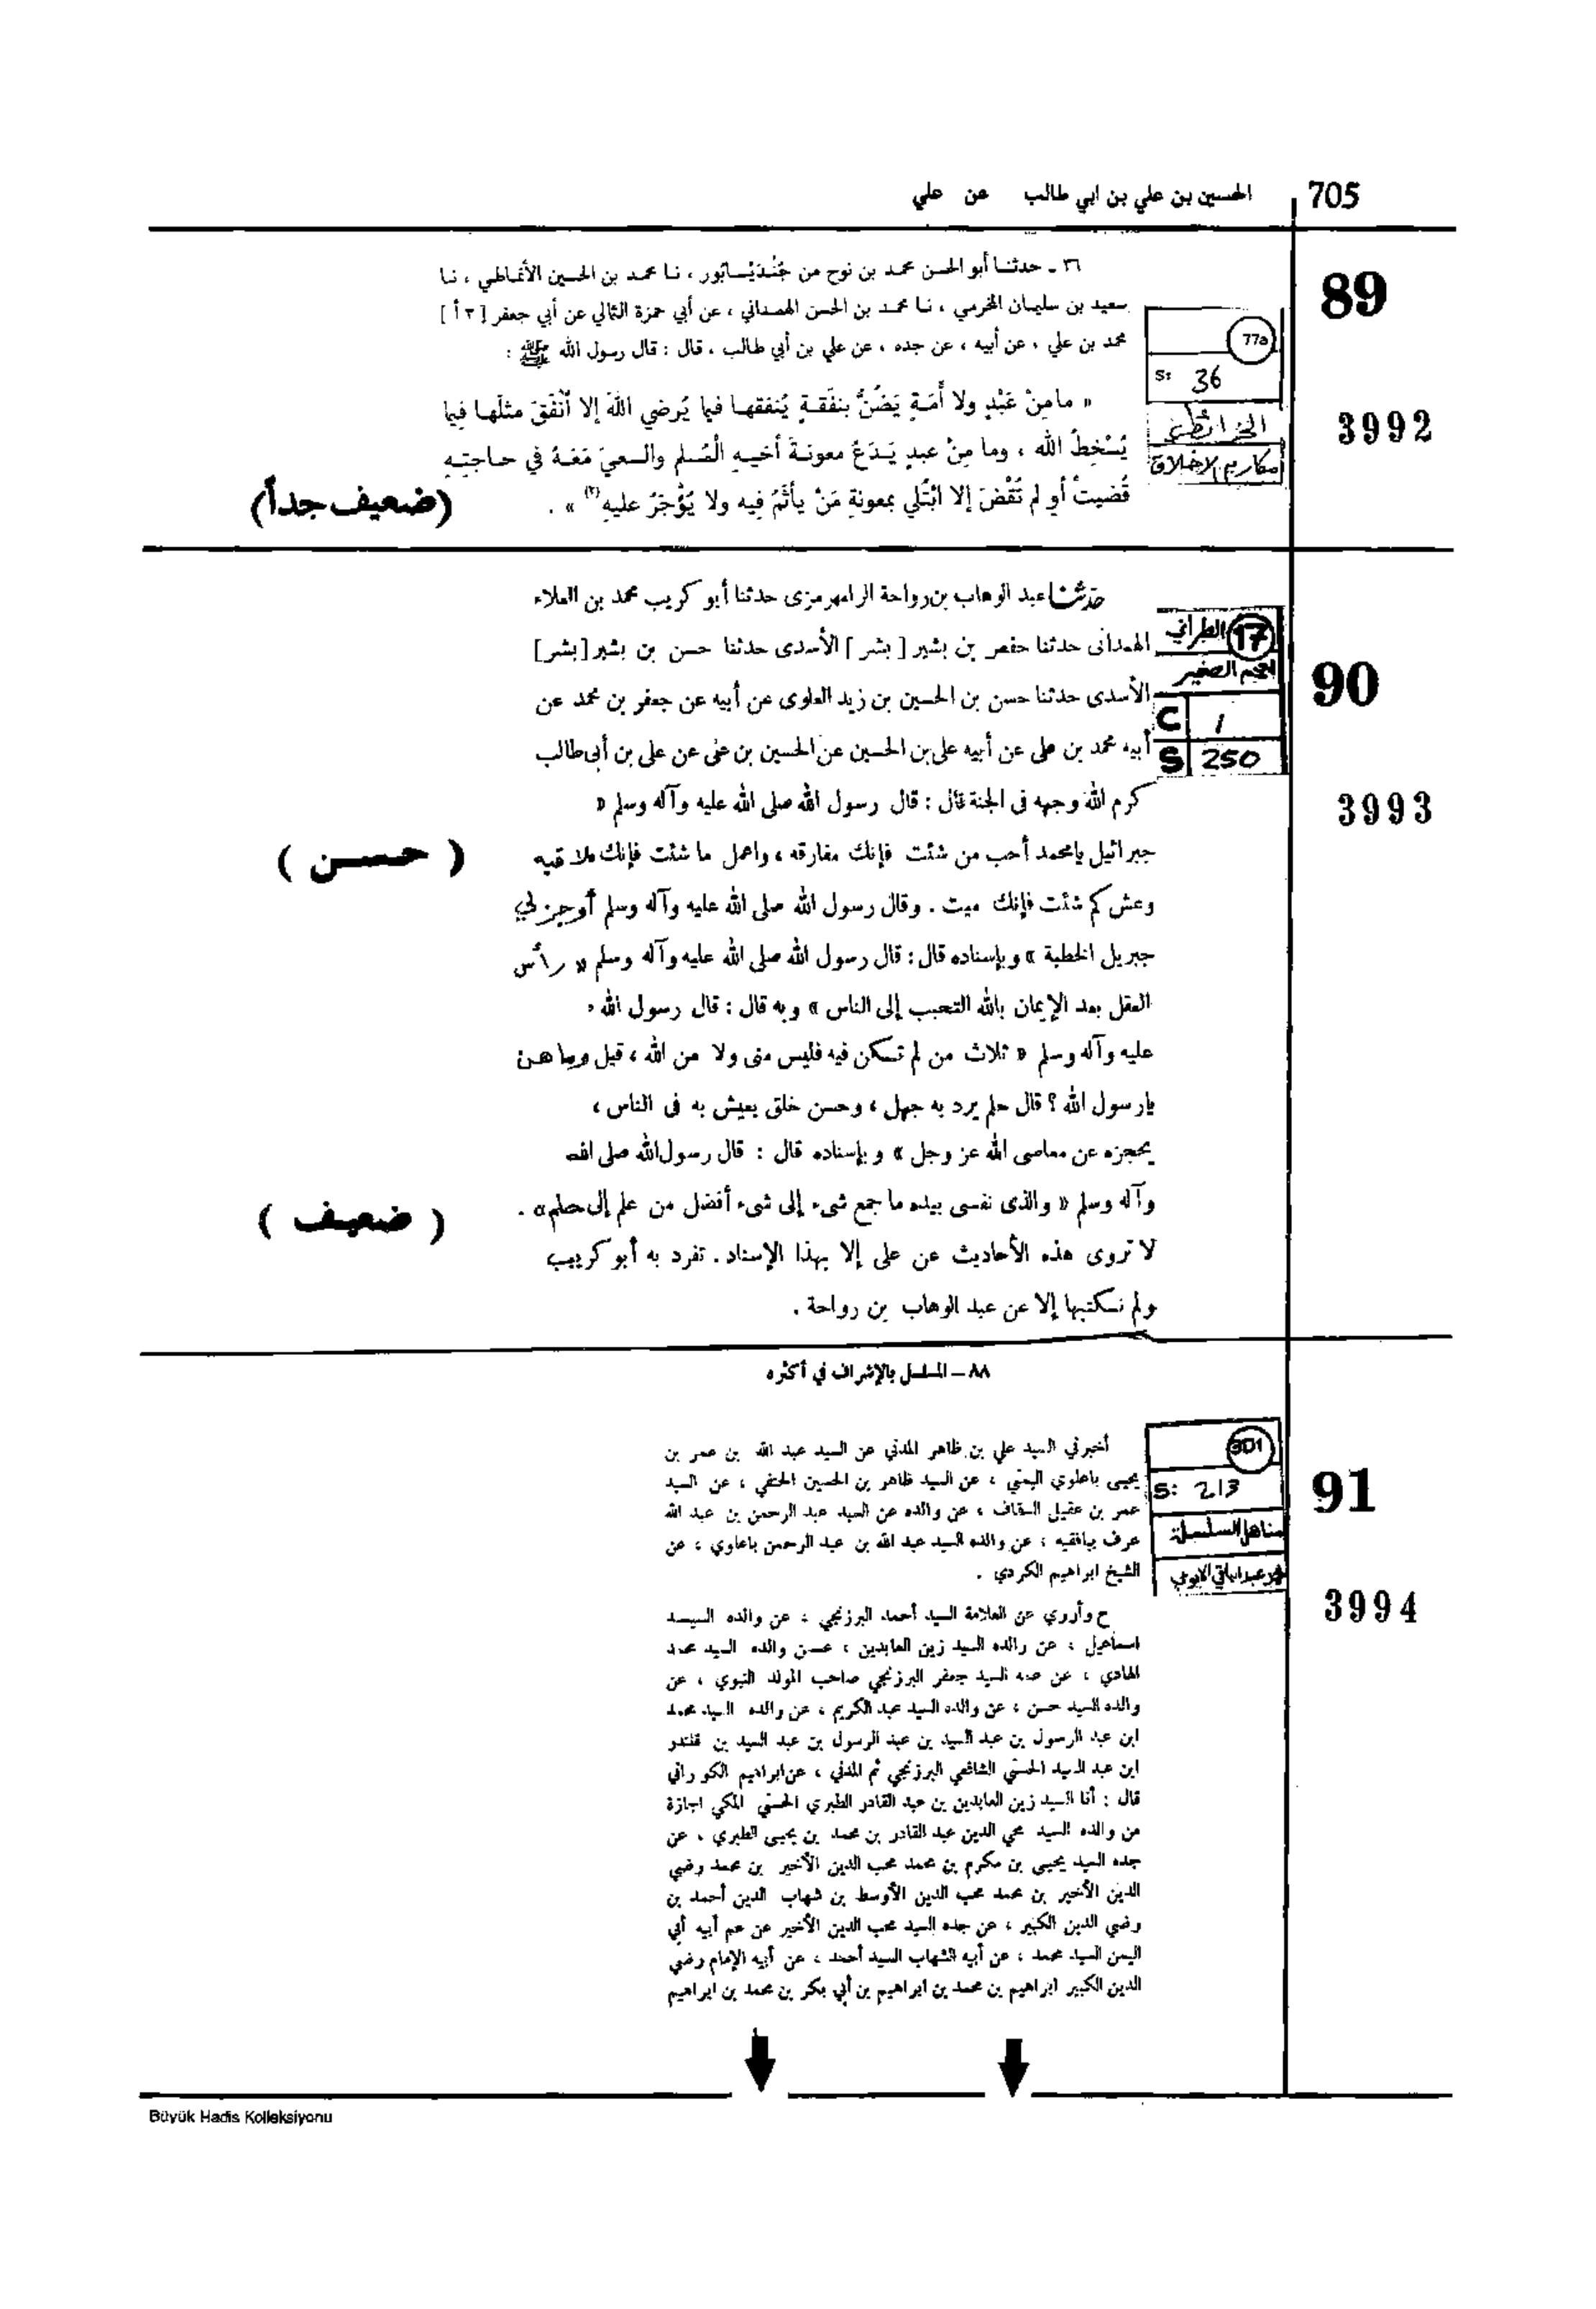 الحسين بن علي بن ابي طالب عن علي
705
89
٣٦ ـ حدثنا أبو الحسن محمد بن نوح من جُنْدَيْسابُور ، نا محمد بن الحسين الأنماطي ، نا
سعيد بن سليمان المخرمي ، نا محمد بن الحسن الهمداني ، عن أبي حمزة الثمالي عن أبي جعفر [ ٣ أ ]
محمد بن علي ، عن أبيه ، عن جده ، عن علي بن أبي طالب ، قال : قال رسول الله ﷺ :
77a
S: 36
الخرائطي
مكارم الاخلاق
3992
« مامِنْ عَبْدٍ ولا أَمَةٍ يَضُنُّ بنفَقةٍ يُنفقها فيما يُرضي اللهَ إلا أنْفَقَ مثلَها فيما
يُسْخِطُ الله ، وما مِنْ عبدٍ يَدَعُ معونةَ أخيهِ الْمُسلم والسعيَ مَعَهُ في حاجتِهِ
قُضيتْ أو لم تُقْضَ إلا ابْتُلي بمعونةِ مَنْ يأثَمُ فيه ولا يُؤْجَرُ عليه(٢) » .
(ضعيف جداً)
90
حدثنا عبد الوهاب بن رواحة الرامهرمزى حدثنا أبو كريب محمد بن العلاء
الهمدانى حدثنا حفص بن بشير [ بشر ] الأسدى حدثنا حسن بن بشير [بشر]
الأسدى حدثنا حسن بن الحسين بن زيد العلوى عن أبيه عن جعفر بن محمد عن
أبيه محمد بن على عن أبيه على بن الحسين عن الحسين بن على عن على بن أبى طالب
17
الطبراني
المعجم الصغير
C 1
S 250
3993
كرم الله وجهه فى الجنة قال : قال رسول الله صلى الله عليه وآله وسلم «
جبرائيل يا محمد أحب من شئت فإنك مفارقه ، واعمل ما شئت فإنك ملاقيه
( حسن )
وعش كم شئت فإنك ميت . وقال رسول الله صلى الله عليه وآله وسلم أوجز لي
جبريل الخطبة » وبإسناده قال : قال رسول الله صلى الله عليه وآله وسلم « رأس
العقل بعد الإيمان بالله التحبب إلى الناس » وبه قال : قال رسول الله
عليه وآله وسلم « ثلاث من لم تكن فيه فليس منى ولا من الله ، قيل وما هن
يا رسول الله ؟ قال حلم يرد به جهل ، وحسن خلق يعيش به فى الناس ،
يحجزه عن معاصى الله عز وجل » وبإسناده قال : قال رسول الله صلى الله
وآله وسلم « والذى نفسى بيده ما جمع شىء إلى شىء أفضل من علم إلى حلم » .
( ضعيف )
لا تروى هذه الأحاديث عن على إلا بهذا الإسناد . تفرد به أبو كريب
ولم نكتبها إلا عن عبد الوهاب بن رواحة .
٨٨ ــ المسلسل بالإشراف في أكثره
91
301
S: 213
مناهل السلسلة
3994
أخبرني السيد علي بن ظاهر المدني عن السيد عبد الله بن عمر بن
يحيى باعلوي اليمني ، عن السيد ظاهر بن الحسين الحنفي ، عن السيد
عمر بن عقيل السقاف ، عن والده عن السيد عبد الرحمن بن عبد الله
عرف ببافقيه ، عن والده السيد عبد الله بن عبد الرحمن باعلوي ، عن
الشيخ ابراهيم الكردي .
ح وأروي عن العلامة السيد أحمد البرزنجي ، عن والده السيد
اسماعيل ، عن والده السيد زين العابدين ، عن والده السيد محمد
الهادي ، عن عمه السيد جعفر البرزنجي صاحب المولد النبوي ، عن
والده السيد حسن ، عن والده السيد عبد الكريم ، عن والده السيد محمد
ابن عبد الرسول بن عبد السيد بن عبد الرسول بن عبد السيد بن قلندر
ابن عبد السيد الحسني الشافعي البرزنجي ثم المدني ، عن ابراهيم الكوراني
قال : أنا السيد زين العابدين بن عبد القادر الطبري الحسني المكي اجازة
من والده السيد محي الدين عبد القادر بن محمد بن يحيى الطبري ، عن
جده السيد يحيى بن مكرم بن محمد محب الدين الأخير بن محمد رضي
الدين الأخير بن محمد محب الدين الأوسط بن شهاب الدين أحمد بن
رضي الدين الكبير ، عن جده السيد محب الدين الأخير عن عم أبيه أبي
اليمن السيد محمد ، عن أبيه الشهاب السيد أحمد ، عن أبيه الإمام رضي
الدين الكبير ابراهيم بن محمد بن ابراهيم بن أبي بكر بن محمد بن ابراهيم
Büyük Hadis Kolleksiyonu